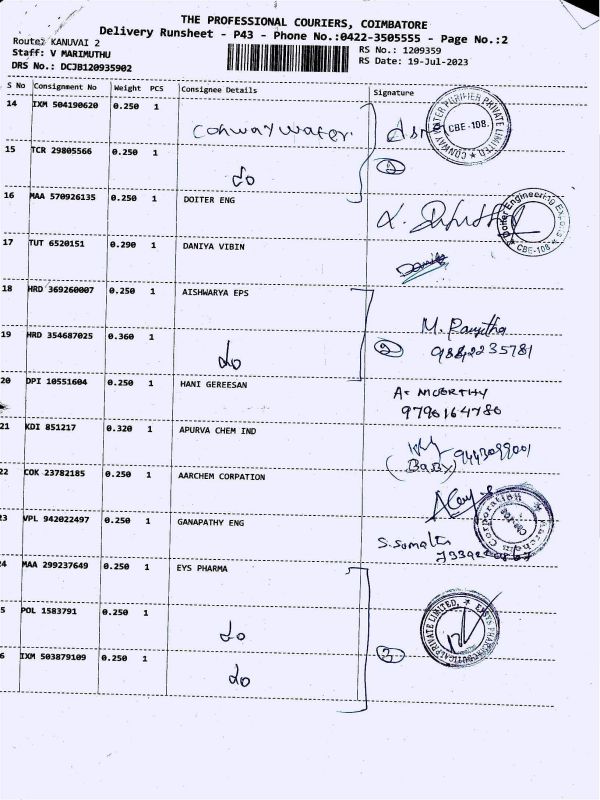 THE PROFESSIONAL COURIERS, COIMBATORE
Delivery Runsheet - P43 - Phone No.:0422-3505555 - Page No.:2
Route: KANUVAI 2
Staff: V MARIMUTHU
DRS No.: DCJB120935902
RS No.: 1209359
RS Date: 19-Jul-2023
S No Consignment No Weight PCS Consignee Details Signature
14 IXM 504190620 0.250 1 Conwaywater.
WATER PURIFIER PRIVATE LIMITED
CBE-108.
CONWAY
15 TCR 29805566 0.250 1 do 2
16 MAA 570926135 0.250 1 DOITER ENG
Doiter Engineering
CBE-108
17 TUT 6520151 0.290 1 DANIYA VIBIN
18 HRD 369260007 0.250 1 AISHWARYA EPS
M. Ranjitha
19 HRD 354687025 0.360 1 do 2 9842235781
20 DPI 10551604 0.250 1 HANI GEREESAN A. MOORTHY
9790164780
21 KDI 851217 0.320 1 APURVA CHEM IND
(Baby) 9443099001
22 COK 23782185 0.250 1 AARCHEM CORPATION
Aarchem Corporation
23 VPL 942022497 0.250 1 GANAPATHY ENG
S. Sumathi
4 MAA 299237649 0.250 1 EYS PHARMA
PRIVATE LIMITED,
5 POL 1583791 0.250 1 do
6 IXM 503879109 0.250 1 do 3